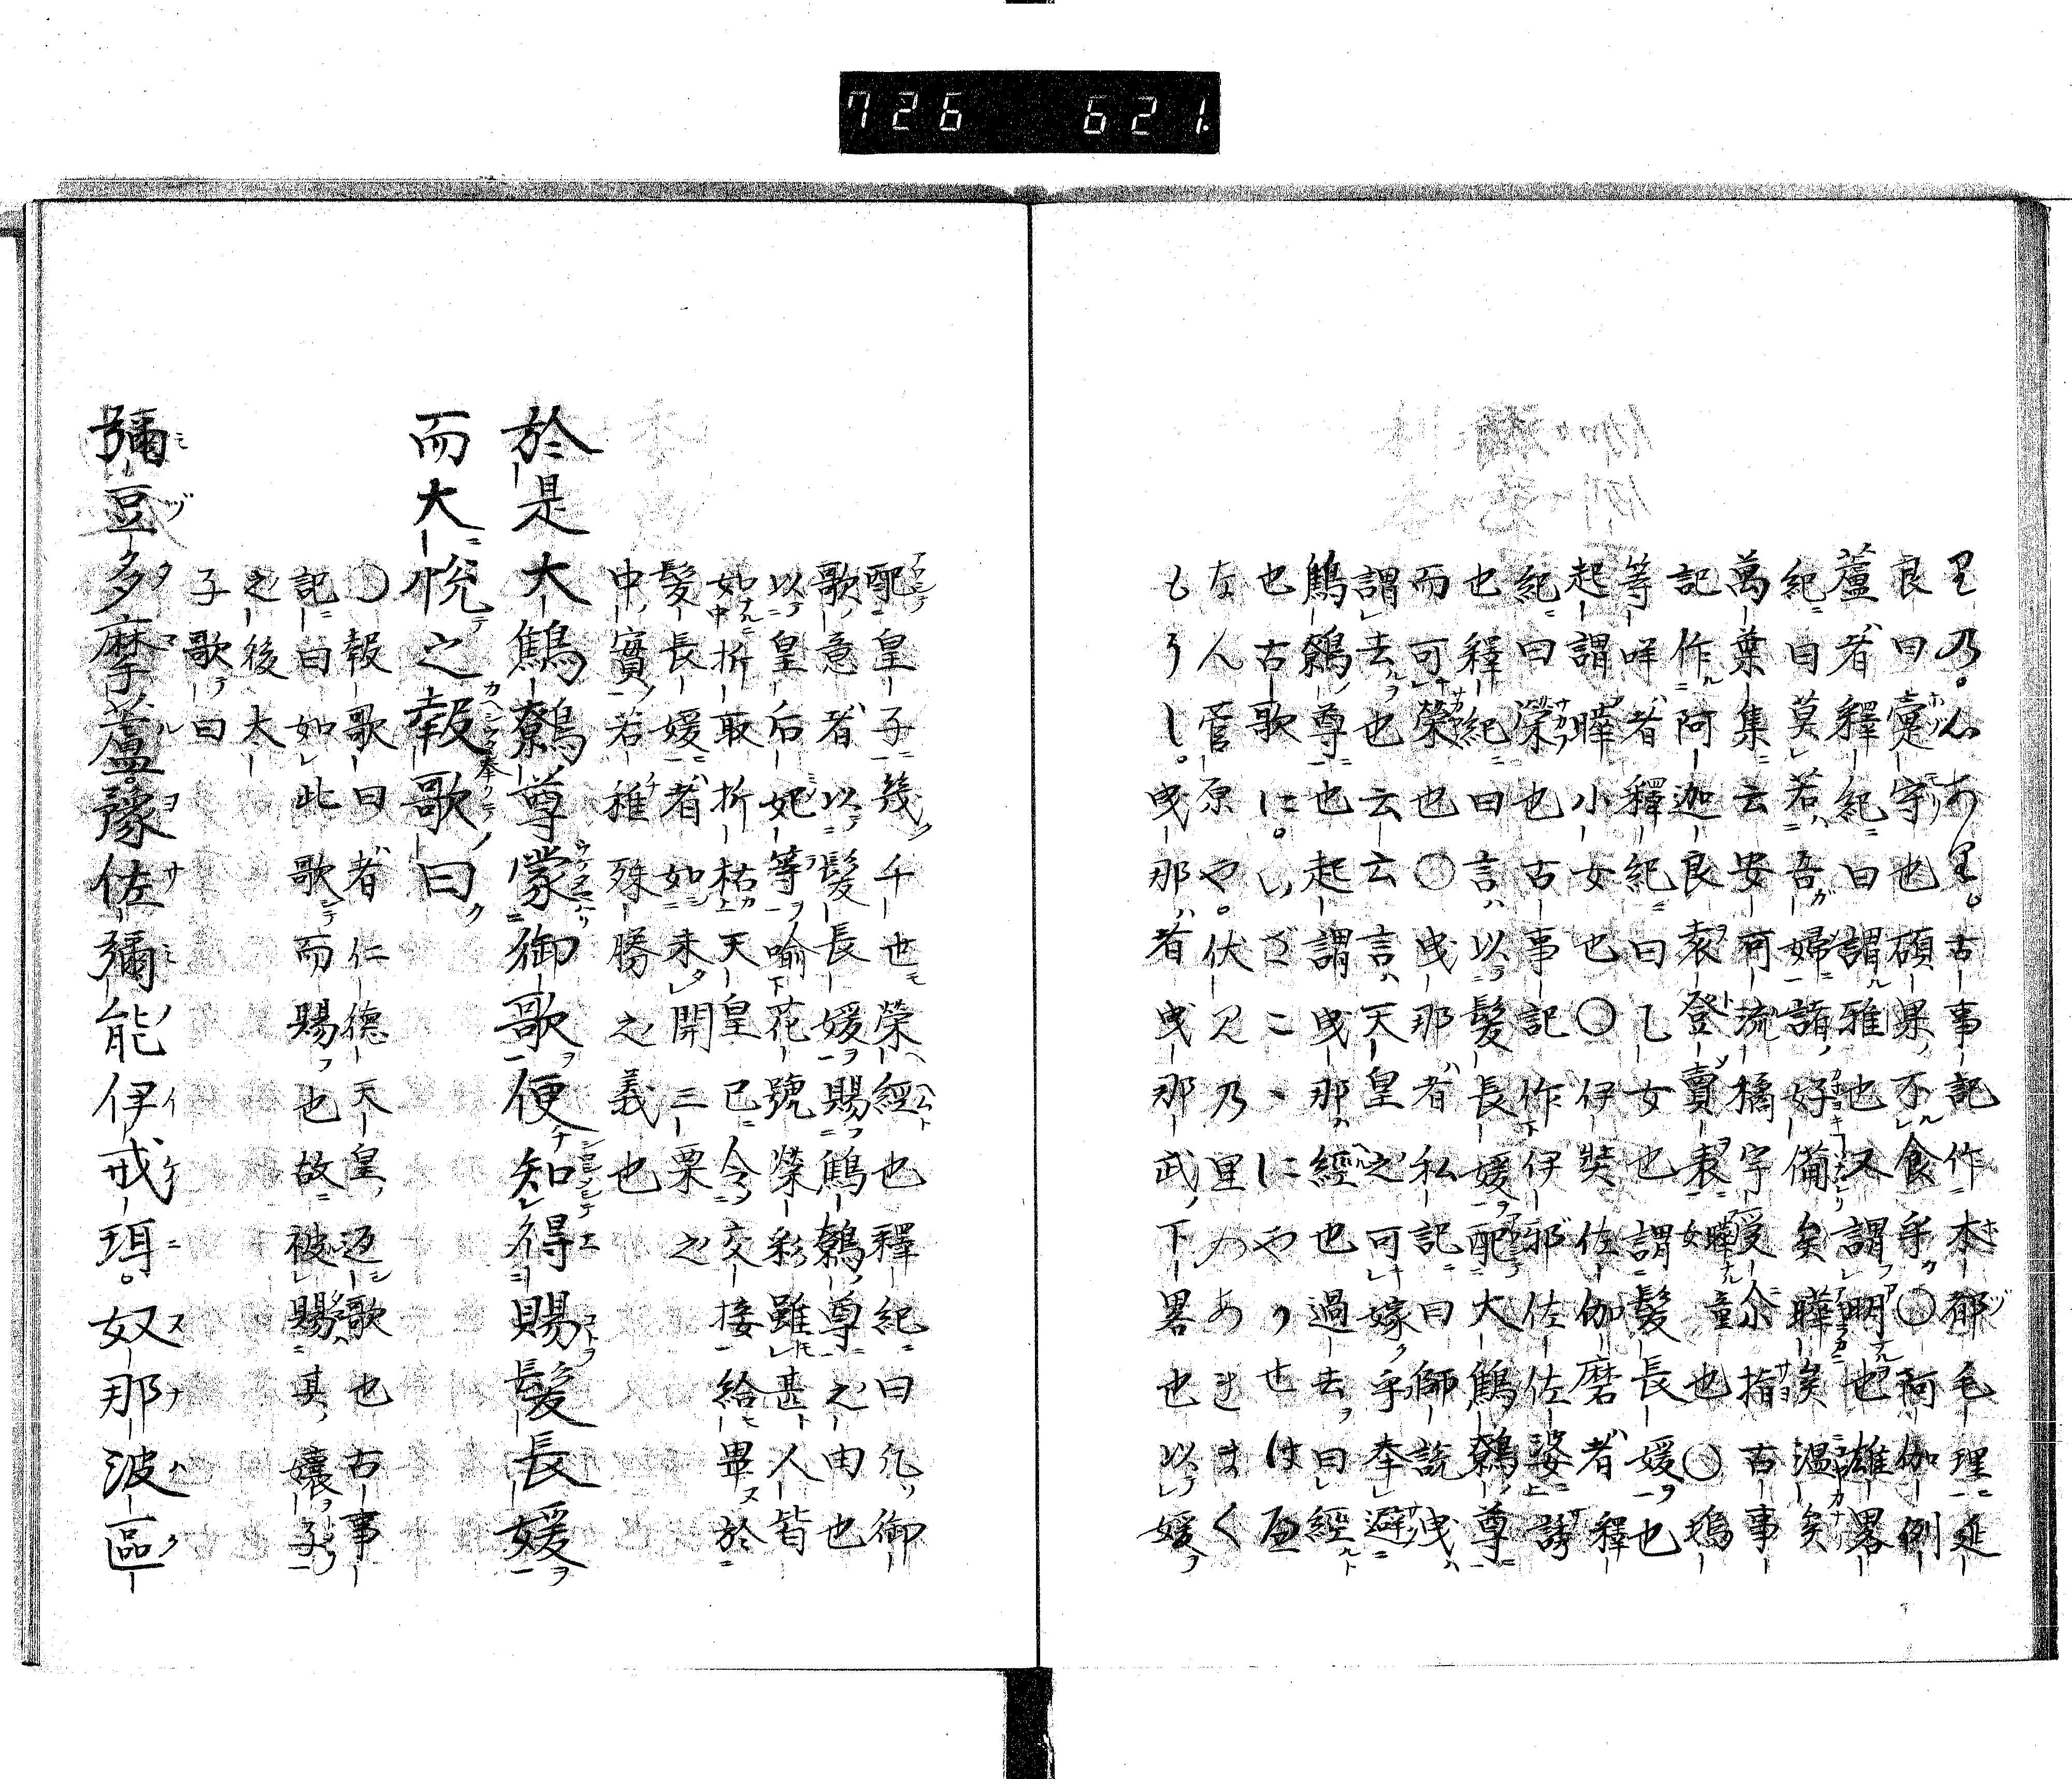 726 621.
里乃。ふあり。古事記作本都毛理延
良曰橐守也碩果不食乎〇阿伽例
蘆者釋紀曰謂雅也又謂明也雄畧
紀曰莫若吾婦諸好備矣曄矣温矣
萬葉集云安可流橘宇受指古事
記作阿迦良袁登賣袁曄女童也〇塢
等咩者釋紀曰乙女也謂髮長媛也
起謂曄小女也〇伊奘佐伽磨者釋
紀曰榮也古事記作伊邪佐佐婆誘
也釋紀曰言以髮長媛配大鷦鷯尊
而可榮也〇曳那者私記曰師説洩
謂去也云云言天皇之可嫁乎奉避
鷦鷯尊也起謂曳那經也過去曰經
也古歌に。いざこゝにやゝせはへ
なん菅原や。伏見乃里のあまく
もうし。曳那者曳那武下畧也以媛
配皇子幾千世榮經也釋紀曰凡御
歌意者以髮長媛賜鷦鷯尊之由也
以皇后妃等喩花號榮彩雖甚人皆
如折取折枯天皇已令交接給畢於
髮長媛者如未開三栗之
中實若稚殊勝之義也
於是大鷦鷯尊蒙御歌便知得賜髮長媛
而大悅之報歌曰
〇報歌曰者仁德天皇返歌也古事
記曰如此歌而賜也故被賜其孃子
之後大
子歌曰
彌豆多摩蘆。豫佐彌能伊戒珥。奴那波區